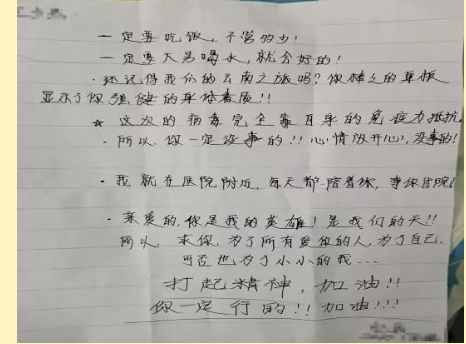 一定要吃饭，不管多少！
一定要大量喝水，就会好的！
·还记得我们的云南之旅吗？你棒棒的单板
显示了你强健的身体素质！！
☆ 这次的病毒完全靠自身的免疫力抵抗
·所以 你一定没事的！！心情放开心，没事的！
·我就在医院附近，每天都陪着你，等你出院！
·亲爱的，你是我的英雄！是我们的天！！
所以，求你，为了所有爱你的人，为了自己，
可否也为了小小的我...
打起精神，加油！！
你一定行的！！加油！！！